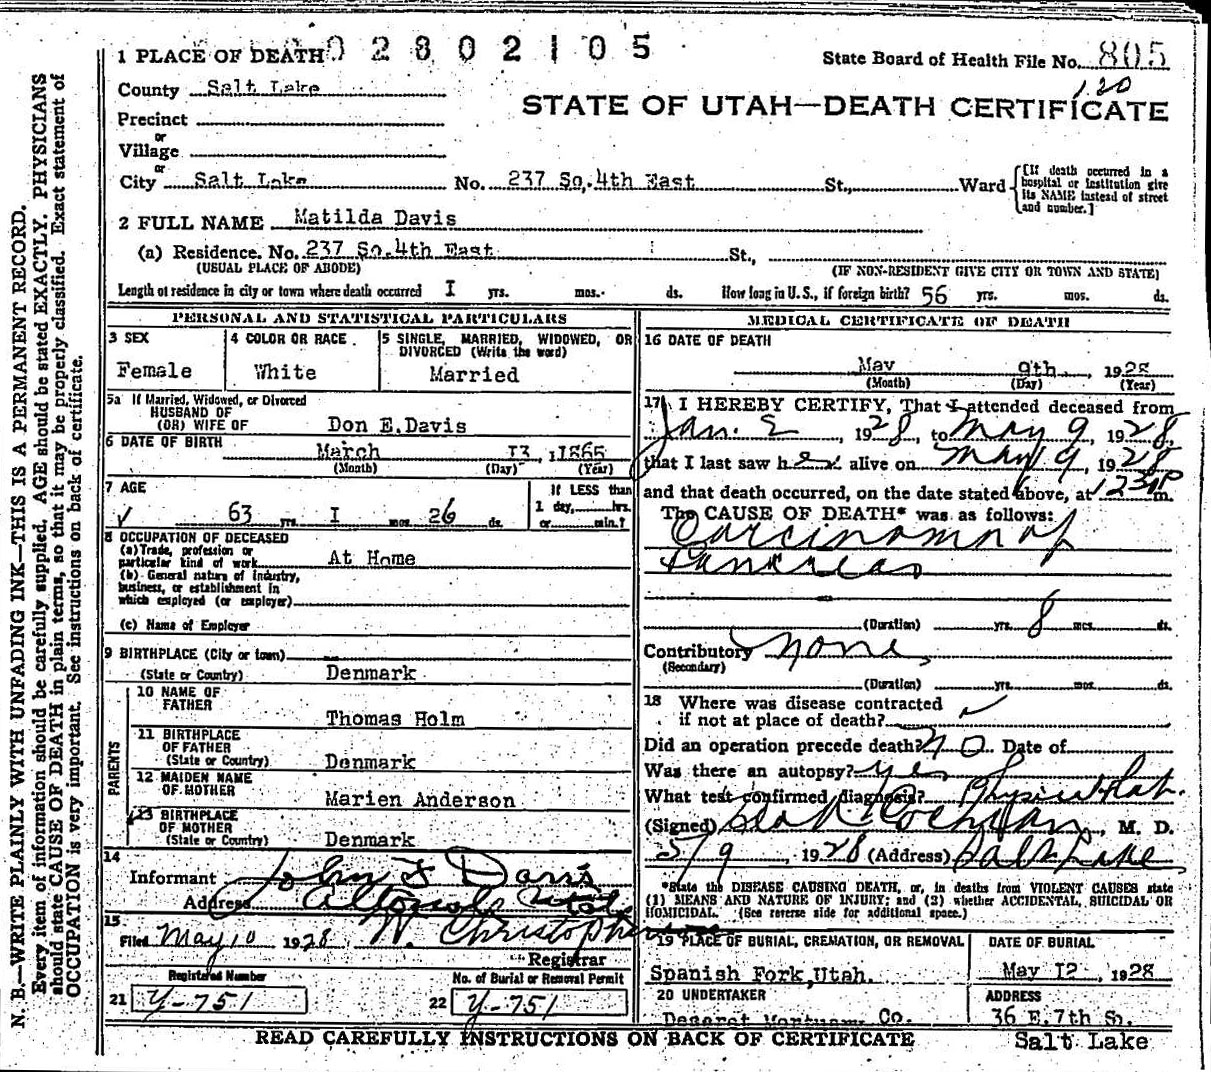 1 PLACE OF DEATH 02802105 State Board of Health File No. 805
County Salt Lake 120
STATE OF UTAH—DEATH CERTIFICATE
Precinct
or
Village
or
City Salt Lake No. 237 So. 4th East St., Ward [If death occurred in a hospital or institution give its NAME instead of street and number.]
2 FULL NAME Matilda Davis
(a) Residence. No. 237 So. 4th East St.,
(USUAL PLACE OF ABODE) (IF NON-RESIDENT GIVE CITY OR TOWN AND STATE)
Length of residence in city or town where death occurred I yrs. mos. ds. How long in U.S., if foreign birth? 56 yrs. mos. ds.
PERSONAL AND STATISTICAL PARTICULARS
3 SEX
Female
4 COLOR OR RACE
White
5 SINGLE, MARRIED, WIDOWED, OR DIVORCED (Write the word)
Married
5a If Married, Widowed, or Divorced
HUSBAND OF
(OR) WIFE OF Don E. Davis
6 DATE OF BIRTH March I3, 1865
(Month) (Day) (Year)
7 AGE If LESS than
1 day, hrs.
63 yrs. I mos. 26 ds. or min.?
8 OCCUPATION OF DECEASED
(a) Trade, profession or
particular kind of work At Home
(b) General nature of industry,
business, or establishment in
which employed (or employer)
(c) Name of Employer
9 BIRTHPLACE (City or town)
(State or Country) Denmark
PARENTS
10 NAME OF
FATHER Thomas Holm
11 BIRTHPLACE
OF FATHER
(State or Country) Denmark
12 MAIDEN NAME
OF MOTHER Marien Anderson
13 BIRTHPLACE
OF MOTHER
(State or Country) Denmark
14
Informant John F Davis
Address
15
Filed May 10 1928 W. Christopherson
Registrar
Registered Number No. of Burial or Removal Permit
21 Y-751 22 Y-751
MEDICAL CERTIFICATE OF DEATH
16 DATE OF DEATH
May 9th, 1928
(Month) (Day) (Year)
17 I HEREBY CERTIFY, That I attended deceased from
Jan. 2, 1928, to May 9, 1928,
that I last saw her alive on May 9, 1928
and that death occurred, on the date stated above, at 1230P m.
The CAUSE OF DEATH* was as follows:
Carcinoma of
Pancreas
(Duration) yrs. 8 mos. ds.
Contributory None
(Secondary)
(Duration) yrs. mos. ds.
18 Where was disease contracted
if not at place of death?
Did an operation precede death? No Date of
Was there an autopsy? yes
What test confirmed diagnosis?
(Signed) M. D.
5/9, 1928 (Address) Salt Lake
*State the DISEASE CAUSING DEATH, or, in deaths from VIOLENT CAUSES state
(1) MEANS AND NATURE OF INJURY; and (2) whether ACCIDENTAL, SUICIDAL OR
HOMICIDAL. (See reverse side for additional space.)
19 PLACE OF BURIAL, CREMATION, OR REMOVAL DATE OF BURIAL
Spanish Fork, Utah. May I2, 1928
20 UNDERTAKER ADDRESS
Deseret Mortuary Co. 36 E. 7th So.
Salt Lake
READ CAREFULLY INSTRUCTIONS ON BACK OF CERTIFICATE
N. B.—WRITE PLAINLY WITH UNFADING INK—THIS IS A PERMANENT RECORD.
Every item of information should be carefully supplied. AGE should be stated EXACTLY. PHYSICIANS
should state CAUSE OF DEATH in plain terms, so that it may be properly classified. Exact statement of
OCCUPATION is very important. See instructions on back of certificate.